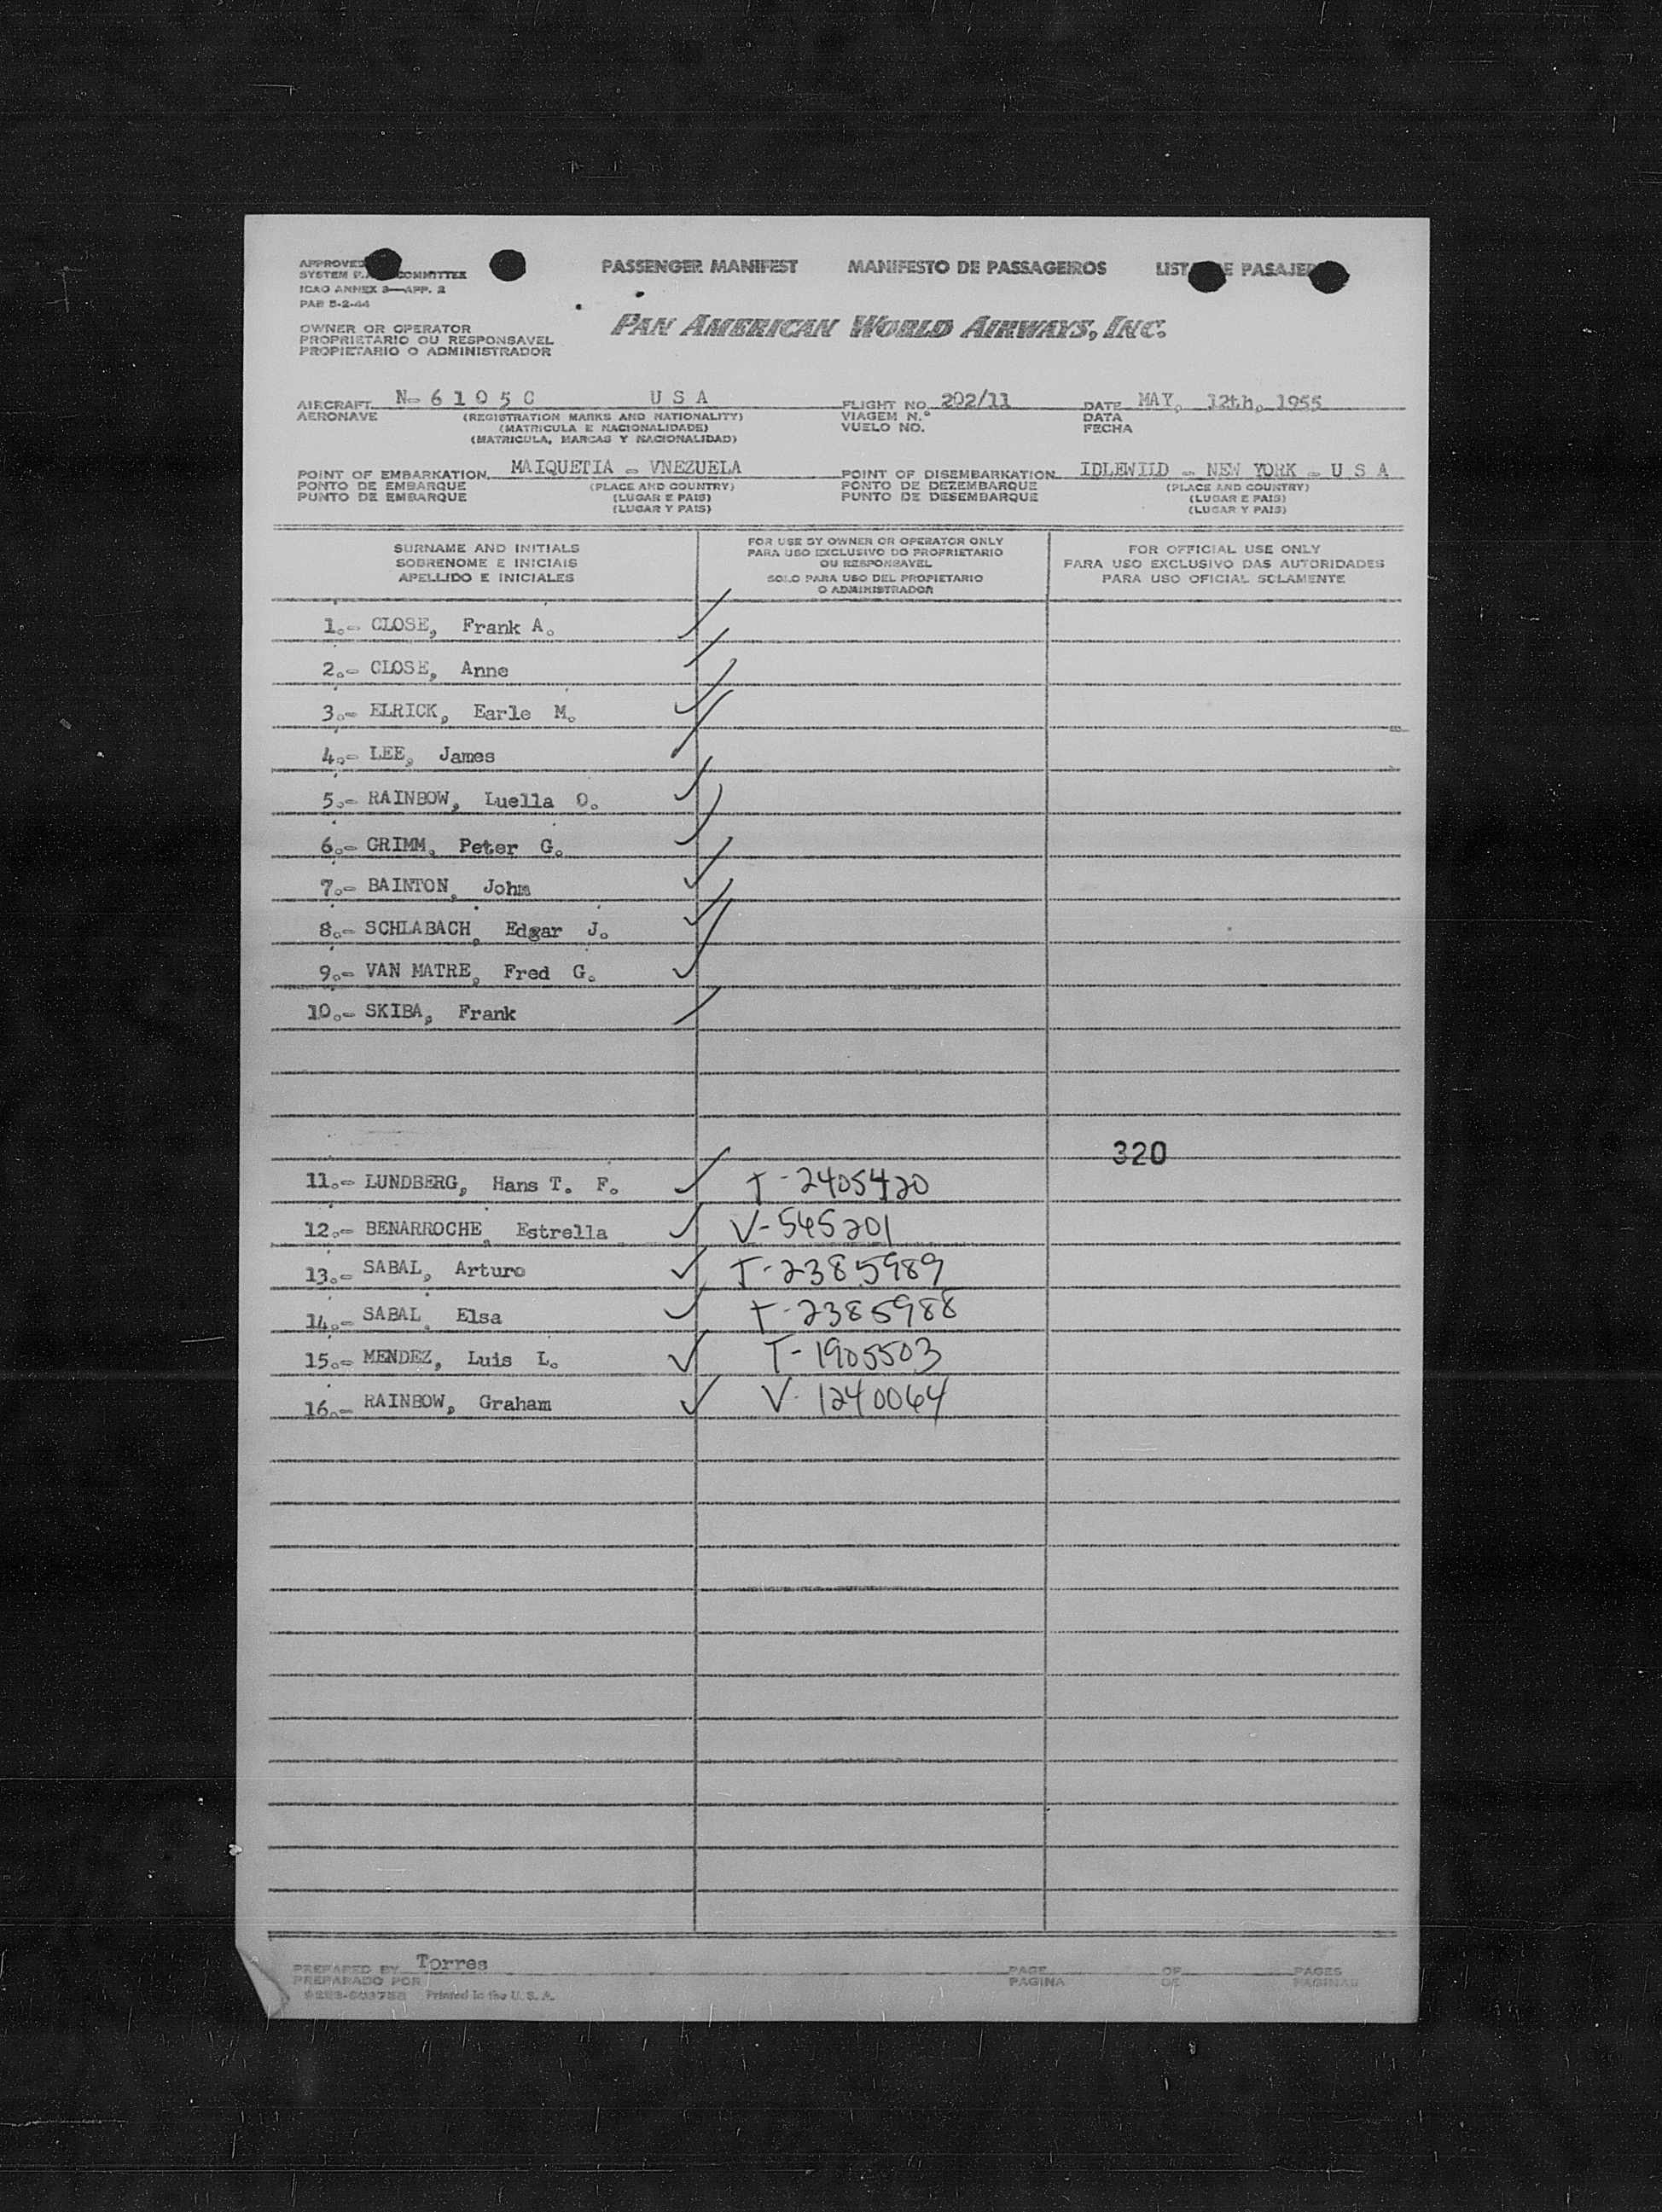 PASSENGER MANIFEST MANIFESTO DE PASSAGEIROS LIST E PASAJER
APPROVED
SYSTEM COMMITTEE
ICAO ANNEX 9—APP. 2
PAB 5-2-44
OWNER OR OPERATOR
PROPRIETARIO OU RESPONSAVEL
PROPIETARIO O ADMINISTRADOR
PAN AMERICAN WORLD AIRWAYS, INC.
AIRCRAFT N- 6 1 0 5 C U S A FLIGHT NO. 202/11 DATE MAY, 12th, 1955
AERONAVE (REGISTRATION MARKS AND NATIONALITY) VIAGEM N.º DATA
(MATRICULA E NACIONALIDADE) VUELO NO. FECHA
(MATRICULA, MARCAS Y NACIONALIDAD)
POINT OF EMBARKATION MAIQUETIA - VNEZUELA POINT OF DISEMBARKATION IDLEWILD - NEW YORK - U S A
PONTO DE EMBARQUE (PLACE AND COUNTRY) PONTO DE DEZEMBARQUE (PLACE AND COUNTRY)
PUNTO DE EMBARQUE (LUGAR E PAIS) PUNTO DE DESEMBARQUE (LUGAR E PAIS)
(LUGAR Y PAIS) (LUGAR Y PAIS)
SURNAME AND INITIALS
SOBRENOME E INICIAIS
APELLIDO E INICIALES
FOR USE BY OWNER OR OPERATOR ONLY
PARA USO EXCLUSIVO DO PROPRIETARIO
OU RESPONSAVEL
SOLO PARA USO DEL PROPIETARIO
O ADMINISTRADOR
FOR OFFICIAL USE ONLY
PARA USO EXCLUSIVO DAS AUTORIDADES
PARA USO OFICIAL SOLAMENTE
1.- CLOSE, Frank A. ✓
2.- CLOSE, Anne ✓
3.- ELRICK, Earle M. ✓
4.- LEE, James ✓
5.- RAINBOW, Luella O. ✓
6.- GRIMM, Peter G. ✓
7.- BAINTON, John ✓
8.- SCHLABACH, Edgar J. ✓
9.- VAN MATRE, Fred G. ✓
10.- SKIBA, Frank ✓
320
11.- LUNDBERG, Hans T. F. ✓ T-2405420
12.- BENARROCHE, Estrella ✓ V-545201
13.- SABAL, Arturo ✓ T-2385989
14.- SABAL, Elsa ✓ T-2385988
15.- MENDEZ, Luis L. ✓ T-1905503
16.- RAINBOW, Graham ✓ V-1240064
PREPARED BY Torres PAGE OF PAGES
PREPARADO POR PAGINA DE PAGINAS
Printed in the U. S. A.